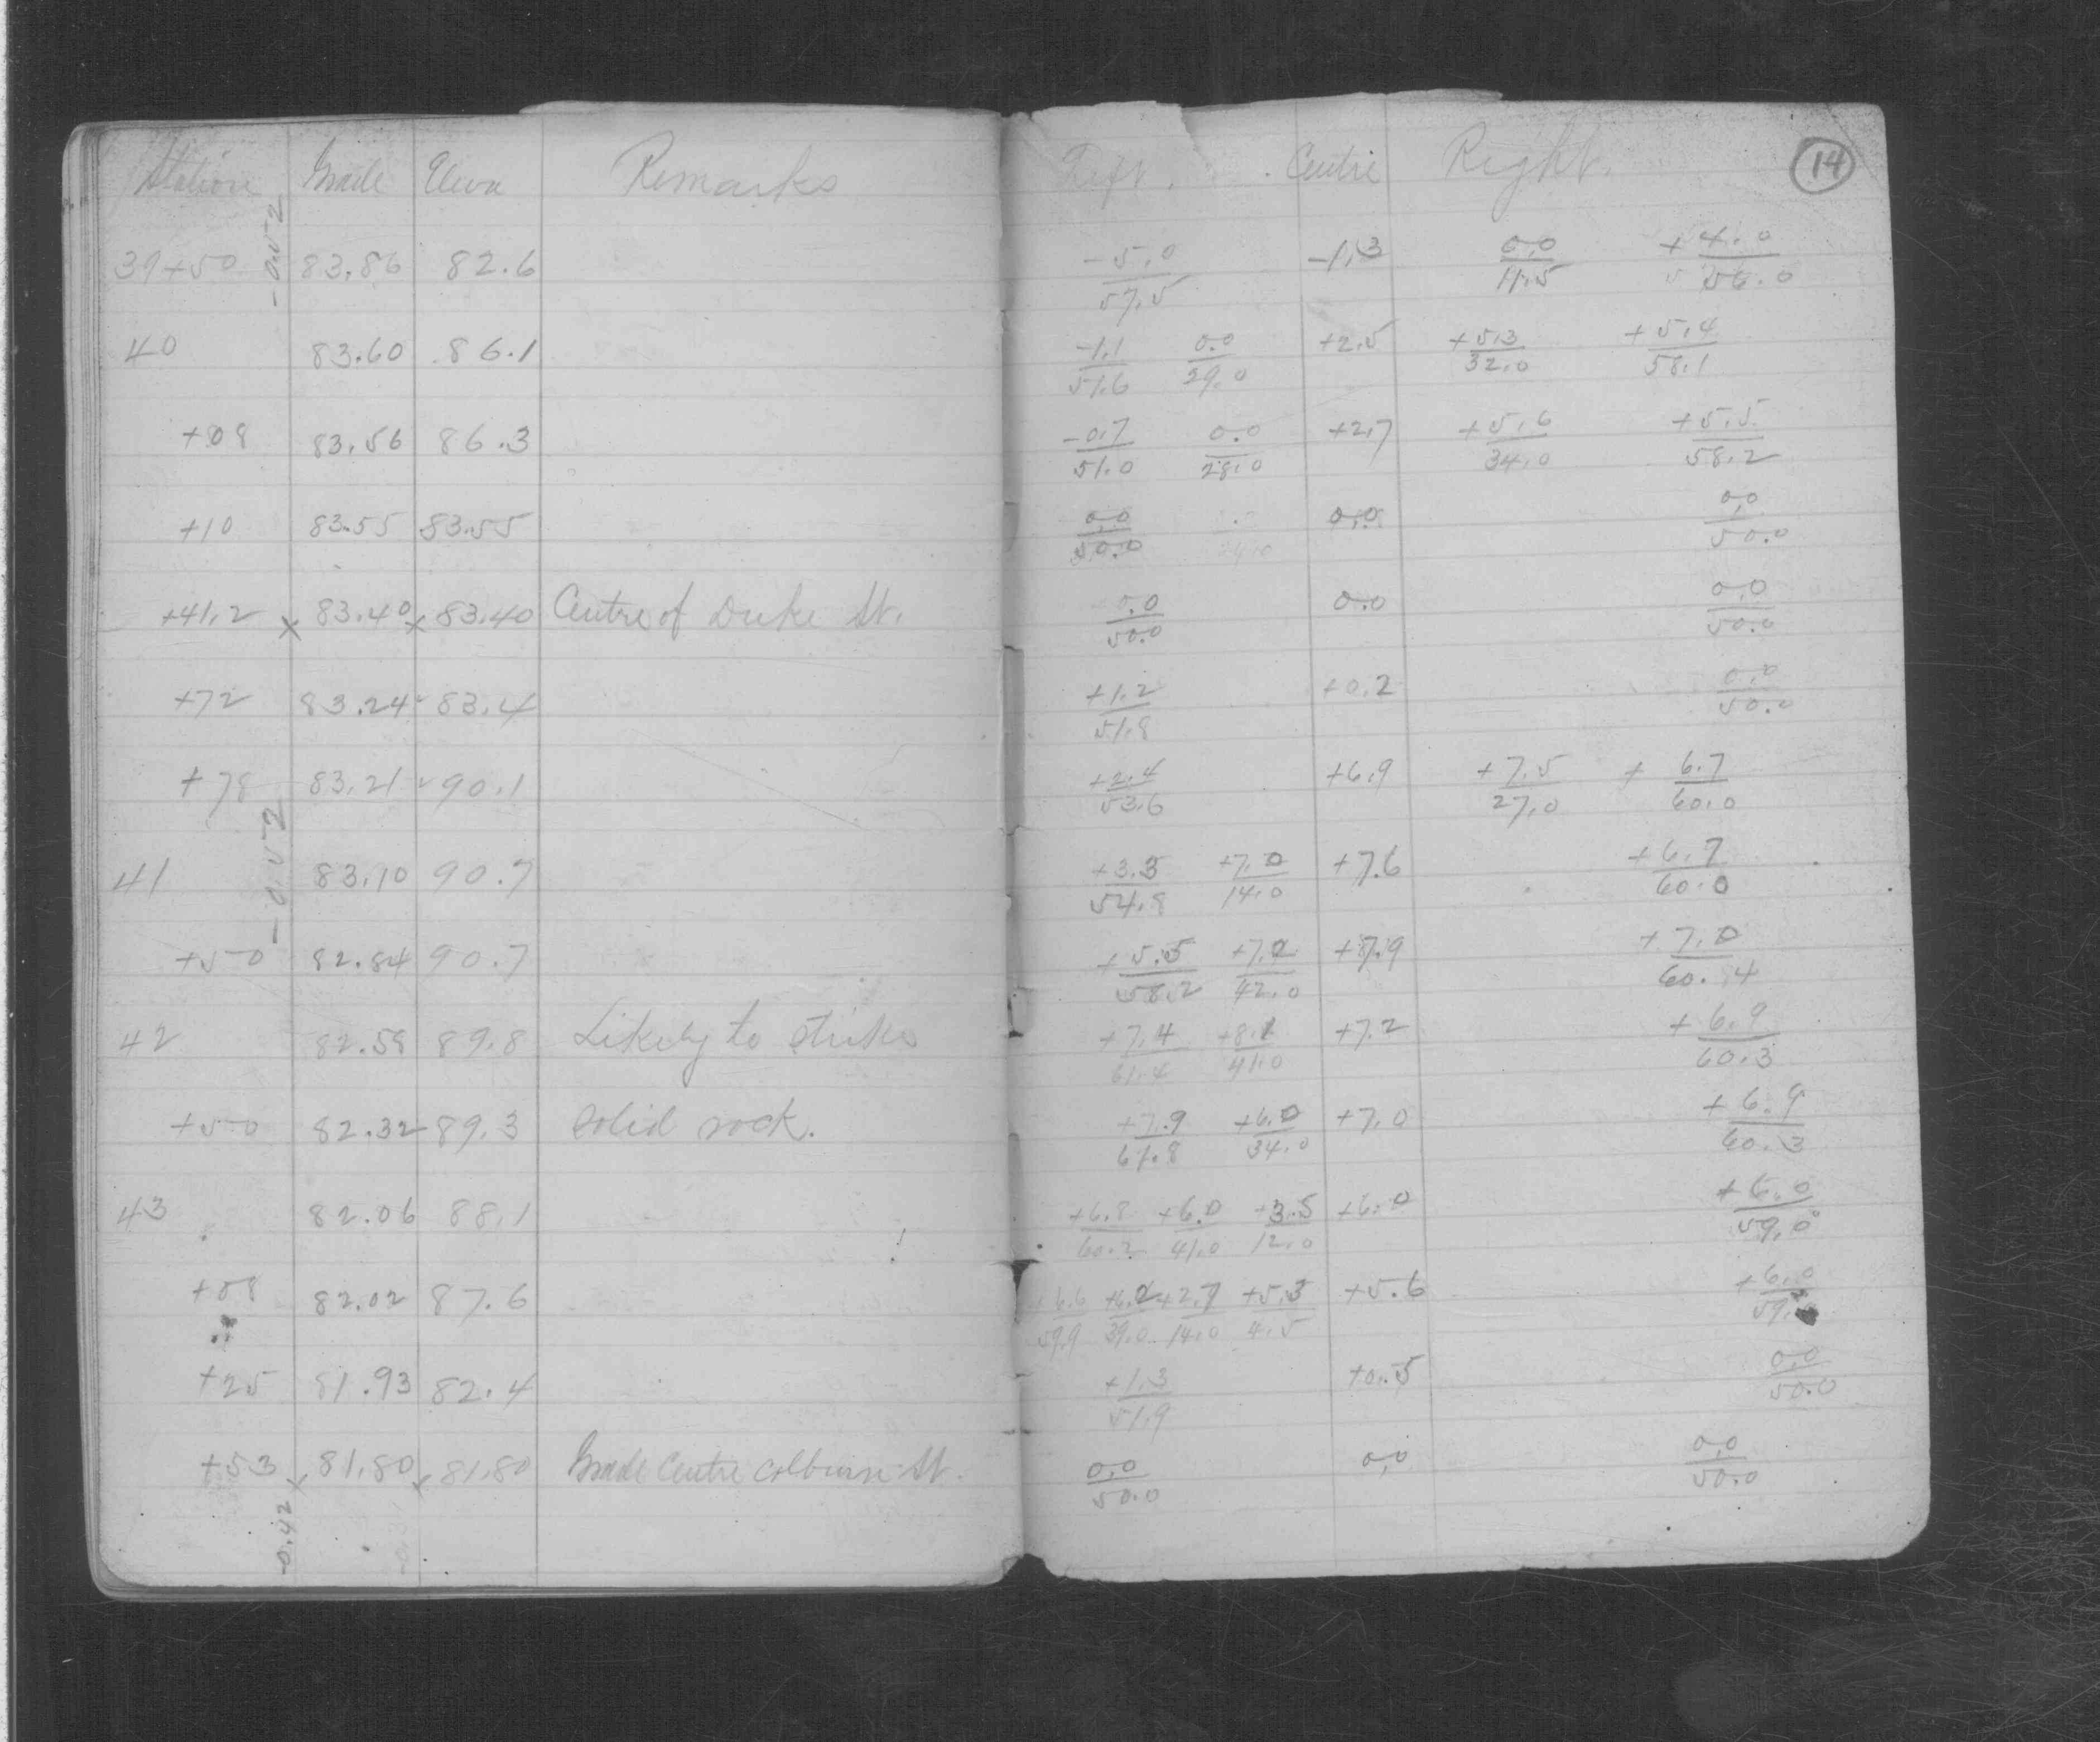 Station Grade Eleva Remarks Left. Centre Right. 14
-0.52
39+50 83.86 82.6 -5.0/57.5 -1.3 0.0/11.5 +4.0/56.0
40 83.60 86.1 -1.1/51.6 0.0/29.0 +2.5 +5.3/32.0 +5.4/58.1
+08 83.56 86.3 -0.7/51.0 0.0/28.0 +2.7 +5.6/34.0 +5.5/58.2
+10 83.55 83.55 0.0/50.0 0.0 0.0/50.0
+41.2 x 83.40 x 83.40 Centre of Duke St. 0.0/50.0 0.0 0.0/50.0
+72 83.24 83.4 +1.2/51.8 +0.2 0.0/50.0
+78 83.21 90.1 +2.4/53.6 +6.9 +7.5/27.0 +6.7/60.0
-0.52
41 83.10 90.7 +3.3/54.8 +7.0/14.0 +7.6 +6.7/60.0
+50 82.84 90.7 +5.5/58.2 +7.2/42.0 +7.9 +7.0/60.4
42 82.58 89.8 Likely to strike +7.4/61.4 +8.1/41.0 +7.2 +6.9/60.3
+50 82.32 89.3 solid rock. +7.9/61.8 +6.0/34.0 +7.0 +6.9/60.3
43 82.06 88.1 +6.8/60.2 +6.0/41.0 +3.5/12.0 +6.0 +6.0/59.0
+08 82.02 87.6 +6.6/59.9 +6.2/39.0 +2.7/14.0 +5.3/4.5 +5.6 +6.0
+25 81.93 82.4 +1.3/51.9 +0.5 0.0/50.0
+53 x 81.80 x 81.80 Grade Centre Colburne St. 0.0/50.0 0.0 0.0/50.0
-0.42